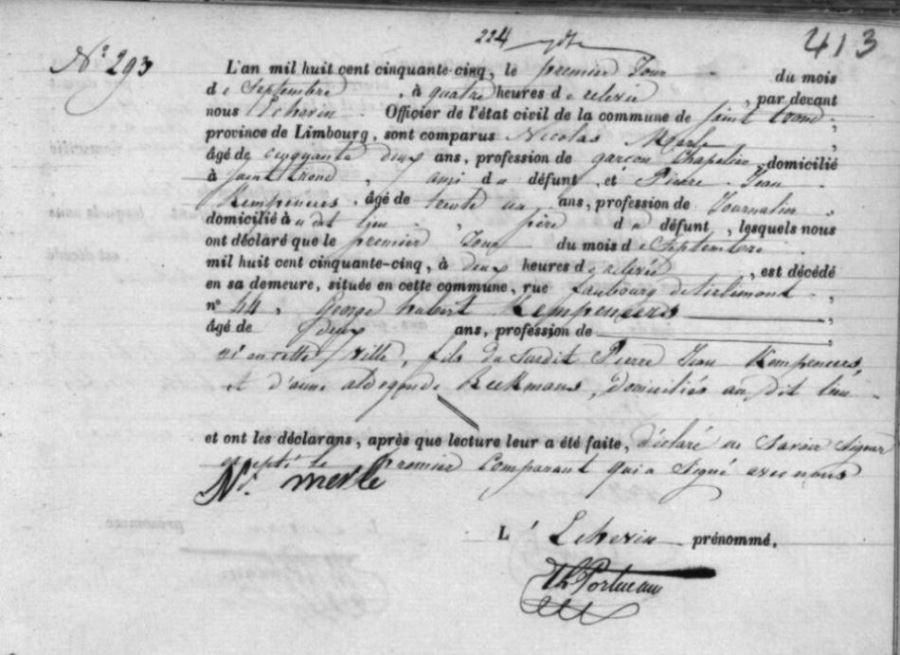 224
413
N° 293
L'an mil huit cent cinquante-cinq, le premier Jour du mois
de Septembre, à quatre heures de relevée, par devant
nous Echevin Officier de l'état civil de la commune de Saint Trond,
province de Limbourg, sont comparus Nicolas Merle
âgé de cinquante deux ans, profession de garçon Chapelier, domicilié
à Saint Trond, ami du défunt, et Pierre Jean
Kempeneers, âgé de trente un ans, profession de Journalier,
domicilié à u dit lieu, père du défunt, lesquels nous
ont déclaré que le premier Jour du mois de Septembre
mil huit cent cinquante-cinq, à deux heures de relevée, est décédé
en sa demeure, située en cette commune, rue faubourg de Tirlemont,
n° 44, George hubert Kempeneers,
âgé de deux ans, profession de
né en cette ville, fils du susdit Pierre Jean Kempeneers,
et d'anne aldegonde Beckmans, domiciliés au dit lieu
et ont les déclarans, après que lecture leur a été faite, déclaré ne savoir signer
excepté le premier comparant qui a signé avec nous
N. merle
L' Echevin prénommé,